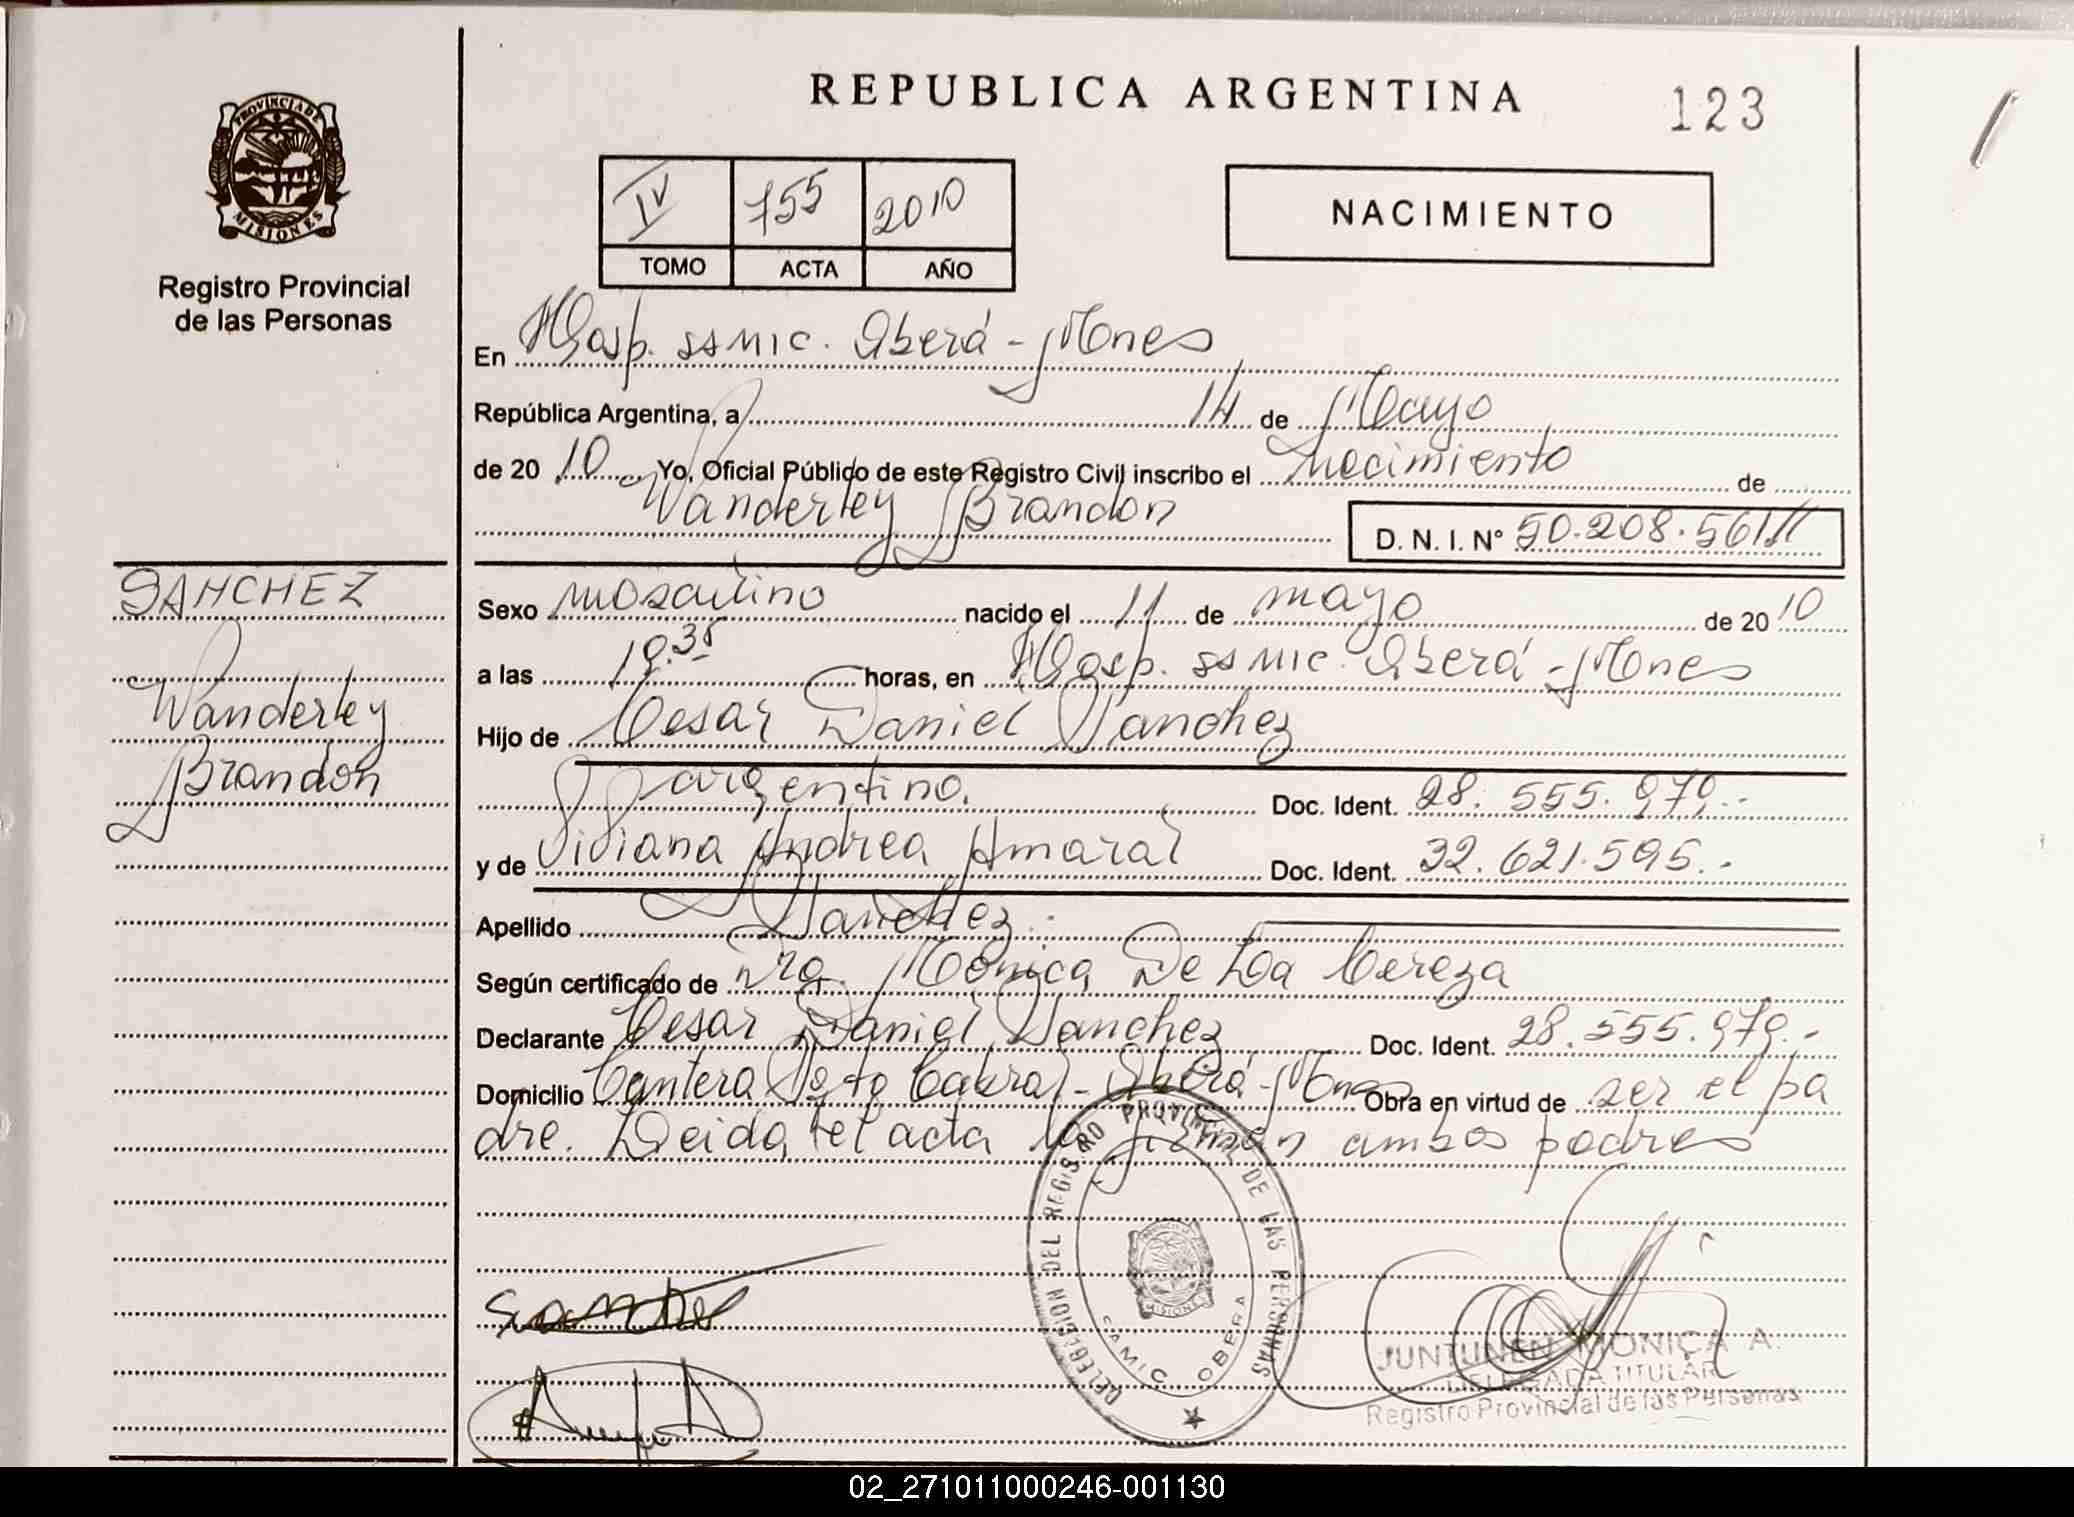 REPUBLICA ARGENTINA
123
PROVINCIA DE
MISIONES
Registro Provincial
de las Personas
IV 755 2010
TOMO ACTA AÑO
NACIMIENTO
En Hosp. ssmic. Oberá - Mnes
República Argentina, a 14 de Mayo
de 20 10 Yo, Oficial Público de este Registro Civil inscribo el nacimiento de
Wanderley Brandon
D. N. I. N° 50.208.561
SANCHEZ
Wanderley
Brandon
Sexo masculino nacido el 11 de mayo de 20 10
a las 19.35 horas, en Hosp. ssmic. Oberá - Mnes
Hijo de Cesar Daniel Sanchez
argentino. Doc. Ident. 28.555.979.-
y de Viviana Andrea Amaral Doc. Ident. 32.621.595.-
Apellido Sanchez.
Según certificado de Dra. Mónica De La Cereza
Declarante Cesar Daniel Sanchez Doc. Ident. 28.555.979.-
Domicilio Cantera Sgto Cabral - Oberá - Mnes Obra en virtud de ser el pa
dre. Leida el acta la firman ambos padres
DELEGACION DEL REGISTRO PROVINCIAL DE LAS PERSONAS
MISIONES
SAMIC OBERA
JUNTUNEN MONICA A.
DELEGADA TITULAR
Registro Provincial de las Personas
02_271011000246-001130